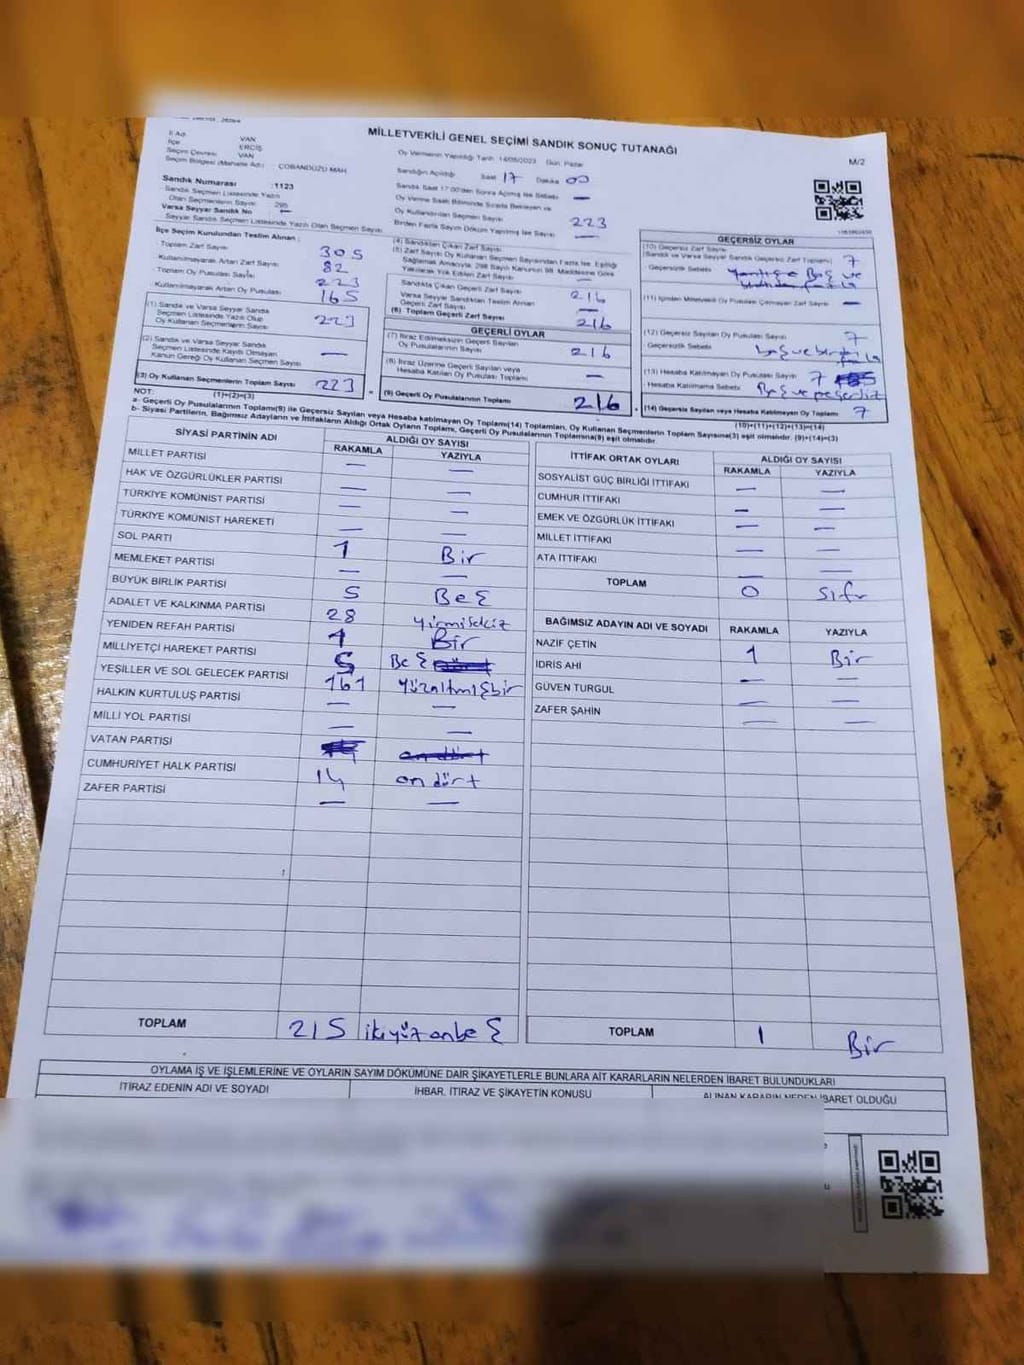 MİLLETVEKİLİ GENEL SEÇİMİ SANDIK SONUÇ TUTANAĞI
M/2
İl Adı: VAN
İlçe ERCİŞ
Seçim Çevresi: VAN
Seçim Bölgesi (Mahalle Adı): ÇOBANDÜZÜ MAH
Sandık Numarası :1123
Sandık Seçmen Listesinde Yazılı
Olan Seçmenlerin Sayısı 295
Varsa Seyyar Sandık No —
Seyyar Sandık Seçmen Listesinde Yazılı Olan Seçmen Sayısı
Oy Vermenin Yapıldığı Tarih: 14/05/2023 Gün: Pazar
Sandığın Açıldığı Saat 17 Dakika 00
Sandık Saat 17:00'den Sonra Açılmış İse Sebebi —
Oy Verme Saati Bitiminde Sırada Bekleyen ve
Oy Kullandırılan Seçmen Sayısı 223
Birden Fazla Sayım Döküm Yapılmış İse Sayısı —
İlçe Seçim Kurulundan Teslim Alınan ;
Toplam Zarf Sayısı 305
Kullanılmayarak Artan Zarf Sayısı 82
Toplam Oy Pusulası Sayısı 223
Kullanılmayarak Artan Oy Pusulası 165
(1) Sandık ve Varsa Seyyar Sandık
Seçmen Listesinde Yazılı Olup
Oy Kullanan Seçmenlerin Sayısı 223
(2) Sandık ve Varsa Seyyar Sandık
Seçmen Listesinde Kaydı Olmayan
Kanun Gereği Oy Kullanan Seçmen Sayısı —
(3) Oy Kullanan Seçmenlerin Toplam Sayısı 223
(1)+(2)=(3)
(4) Sandıktan Çıkan Zarf Sayısı
(5) Zarf Sayısı Oy Kullanan Seçmen Sayısından Fazla İse, Eşitliği
Sağlamak Amacıyla, 298 Sayılı Kanunun 98. Maddesine Göre
Yakılarak Yok Edilen Zarf Sayısı —
Sandıkta Çıkan Geçerli Zarf Sayısı 216
Varsa Seyyar Sandıktan Teslim Alınan
Geçerli Zarf Sayısı —
(6) Toplam Geçerli Zarf Sayısı 216
GEÇERLİ OYLAR
(7) İtiraz Edilmeksizin Geçerli Sayılan
Oy Pusulalarının Sayısı 216
(8) İtiraz Üzerine Geçerli Sayılan veya
Hesaba Katılan Oy Pusulası Toplamı —
(9) Geçerli Oy Pusulalarının Toplamı 216
GEÇERSİZ OYLAR
(10) Geçersiz Zarf Sayısı
(Sandık ve Varsa Seyyar Sandık Geçersiz Zarf Toplamı) 7
Geçersizlik Sebebi
(11) İçinden Milletvekili Oy Pusulası Çıkmayan Zarf Sayısı —
(12) Geçersiz Sayılan Oy Pusulası Sayısı 7
Geçersizlik Sebebi
(13) Hesaba Katılmayan Oy Pusulası Sayısı 7
Hesaba Katılmama Sebebi
(14) Geçersiz Sayılan veya Hesaba Katılmayan Oy Toplamı 7
(10)+(11)+(12)+(13)=(14)
NOT:
a- Geçerli Oy Pusulalarının Toplamı(9) ile Geçersiz Sayılan veya Hesaba katılmayan Oy Toplamı(14) Toplamları, Oy Kullanan Seçmenlerin Toplam Sayısına(3) eşit olmalıdır. (9)+(14)=(3)
b- Siyasi Partilerin, Bağımsız Adayların ve İttifakların Aldığı Ortak Oyların Toplamı, Geçerli Oy Pusulalarının Toplamına(9) eşit olmalıdır.
SİYASİ PARTİNİN ADI ALDIĞI OY SAYISI
RAKAMLA YAZIYLA
MİLLET PARTİSİ — —
HAK VE ÖZGÜRLÜKLER PARTİSİ — —
TÜRKİYE KOMÜNİST PARTİSİ — —
TÜRKİYE KOMÜNİST HAREKETİ — —
SOL PARTİ 1 Bir
MEMLEKET PARTİSİ — —
BÜYÜK BİRLİK PARTİSİ 5 Beş
ADALET VE KALKINMA PARTİSİ 28 yirmisekiz
YENİDEN REFAH PARTİSİ 1 Bir
MİLLİYETÇİ HAREKET PARTİSİ 5 Beş
YEŞİLLER VE SOL GELECEK PARTİSİ 161 Yüzaltmışbir
HALKIN KURTULUŞ PARTİSİ — —
MİLLİ YOL PARTİSİ — —
VATAN PARTİSİ
CUMHURİYET HALK PARTİSİ 14 ondört
ZAFER PARTİSİ — —
TOPLAM 215 ikiyüzonbeş
İTTİFAK ORTAK OYLARI ALDIĞI OY SAYISI
RAKAMLA YAZIYLA
SOSYALİST GÜÇ BİRLİĞİ İTTİFAKI — —
CUMHUR İTTİFAKI — —
EMEK VE ÖZGÜRLÜK İTTİFAKI — —
MİLLET İTTİFAKI — —
ATA İTTİFAKI — —
TOPLAM 0 sıfır
BAĞIMSIZ ADAYIN ADI VE SOYADI RAKAMLA YAZIYLA
NAZİF ÇETİN 1 Bir
İDRİS AHİ — —
GÜVEN TURGUL — —
ZAFER ŞAHİN — —
TOPLAM 1 Bir
OYLAMA İŞ VE İŞLEMLERİNE VE OYLARIN SAYIM DÖKÜMÜNE DAİR ŞİKAYETLERLE BUNLARA AİT KARARLARIN NELERDEN İBARET BULUNDUKLARI
İTİRAZ EDENİN ADI VE SOYADI İHBAR, İTİRAZ VE ŞİKAYETİN KONUSU ALINAN KARARIN NEDEN İBARET OLDUĞU